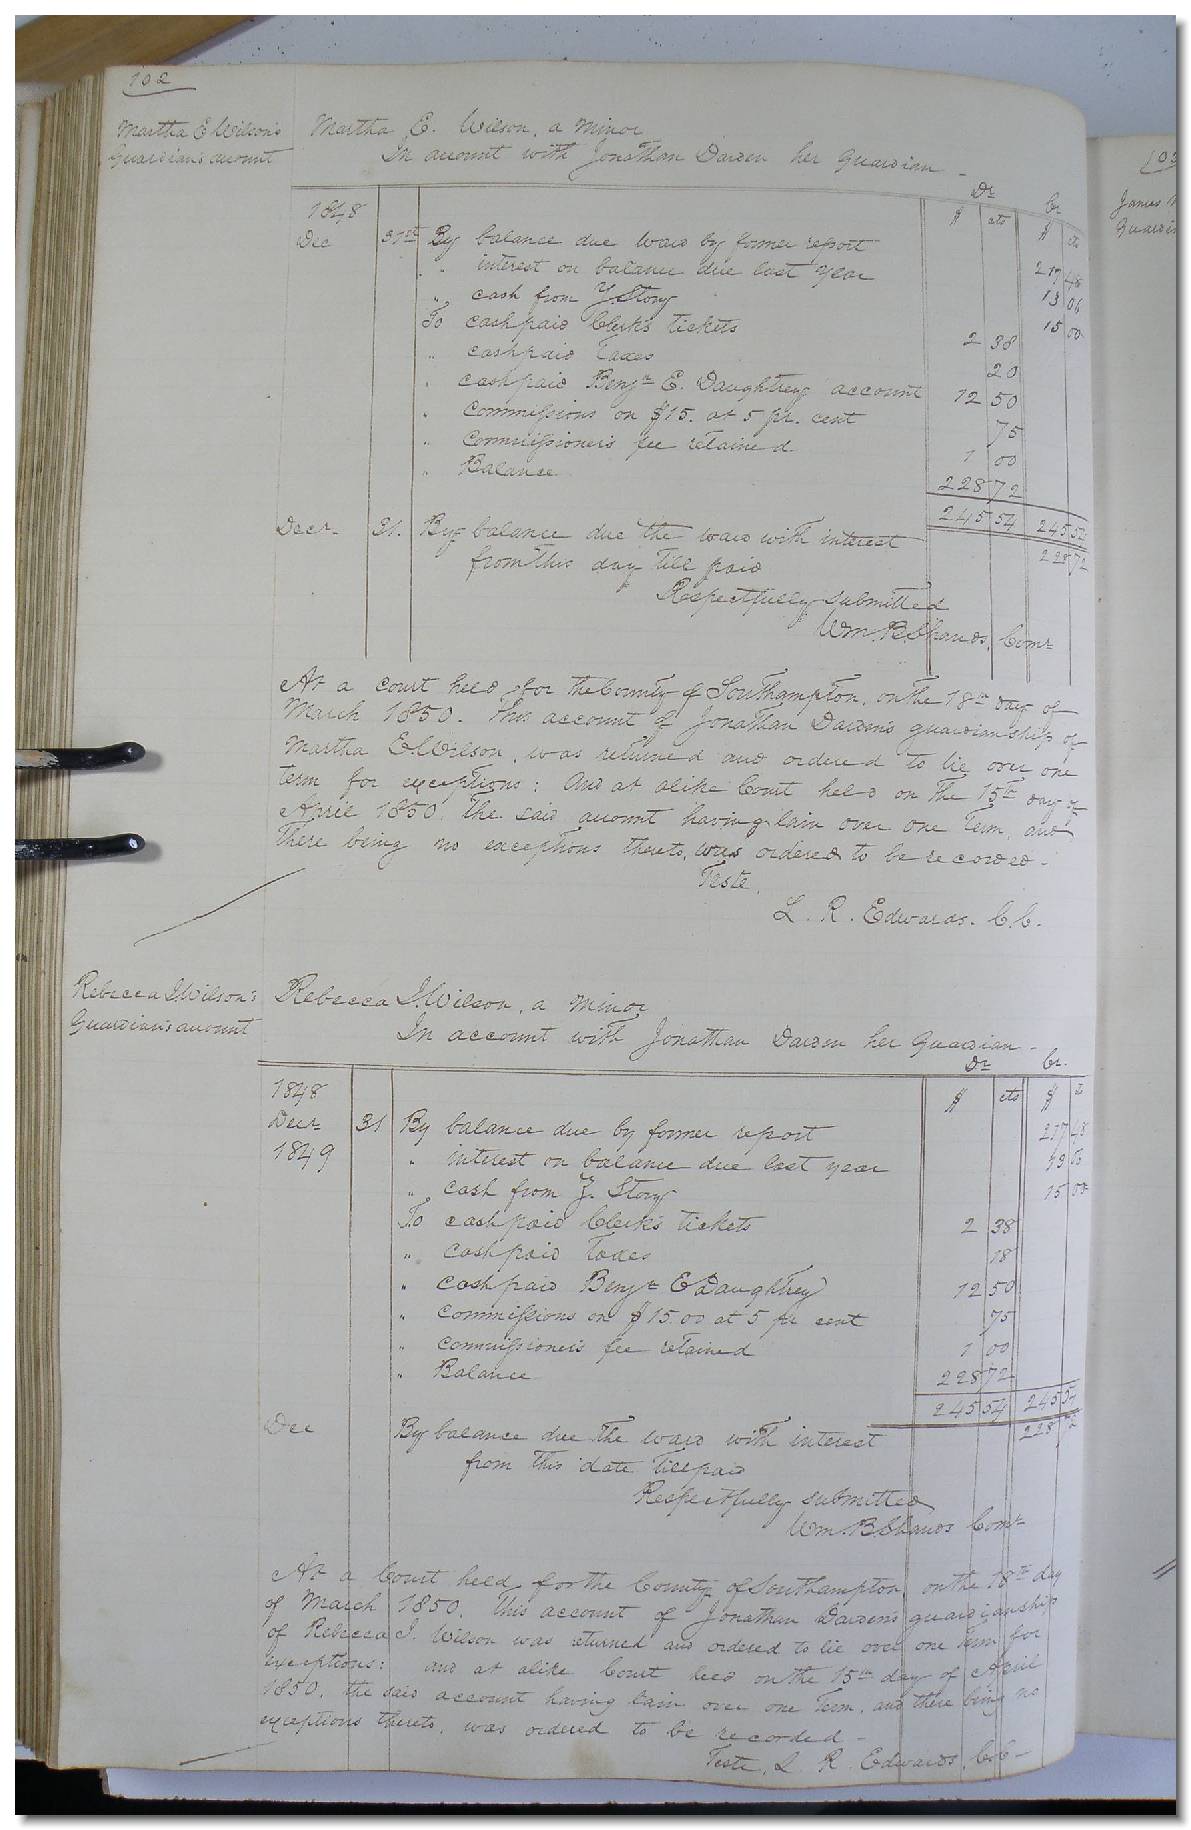 102
Martha E Wilson's
Guardian's account
Martha E. Wilson, a Minor
In account with Jonathan Darden her Guardian
Dr Cr
$ cts $ cts
1848
Dec 31st By balance due ward by former report 217 48
" " interest on balance due last year 13 06
" " cash from Z Story 15 00
To cash paid Clerk's tickets 2 38
" cash paid Taxes 20
" cash paid Benjn E. Daughtrey account 12 50
" Commissions on $15. at 5 pr. cent 75
" Commissioner's fee retained 1 00
" Balance 228 72
245 54 245 54
Decr 31. By balance due the ward with interest 228 72
from this day till paid
Respectfully submitted
Wm. B. Shands, Comr
At a court held for the County of Southampton, on the 18th day of
March 1850. This account of Jonathan Darden's guardianship of
Martha E Wilson, was returned and ordered to lie over one
term for exceptions: And at alike Court held on the 15th day of
April 1850. The said account having lain over one Term, and
there being no exceptions thereto, was ordered to be recorded.
Teste,
L. R. Edwards. C.C.
Rebecca I Wilson's
Guardian's account
Rebecca I. Wilson, a Minor
In account with Jonathan Darden her Guardian
Dr Cr.
$ cts $
1848
Decr 31 By balance due by former report 217 48
1849 " interest on balance due last year
" cash from Z. Story 15 00
To cash paid Clerk's tickets 2 38
" cash paid Taxes 18
" cash paid Benjn E Daughtrey 12 50
" Commissions on $15.00 at 5 pr cent 75
" Commissioner's fee retained 1 00
" Balance 228 72
245 54 245 54
Dec By balance due the ward with interest 228 72
from this date till paid
Respectfully submitted
Wm. B. Shands Comr
At a Court held for the County of Southampton on the 18th day
of March 1850. This account of Jonathan Darden's guardianship
of Rebecca I. Wilson was returned and ordered to lie over one Term for
exceptions: and at alike Court held on the 15th day of April
1850. the said account having lain over one Term, and there being no
exceptions thereto, was ordered to be recorded.
Teste, L. R. Edwards, C.C.
103
James